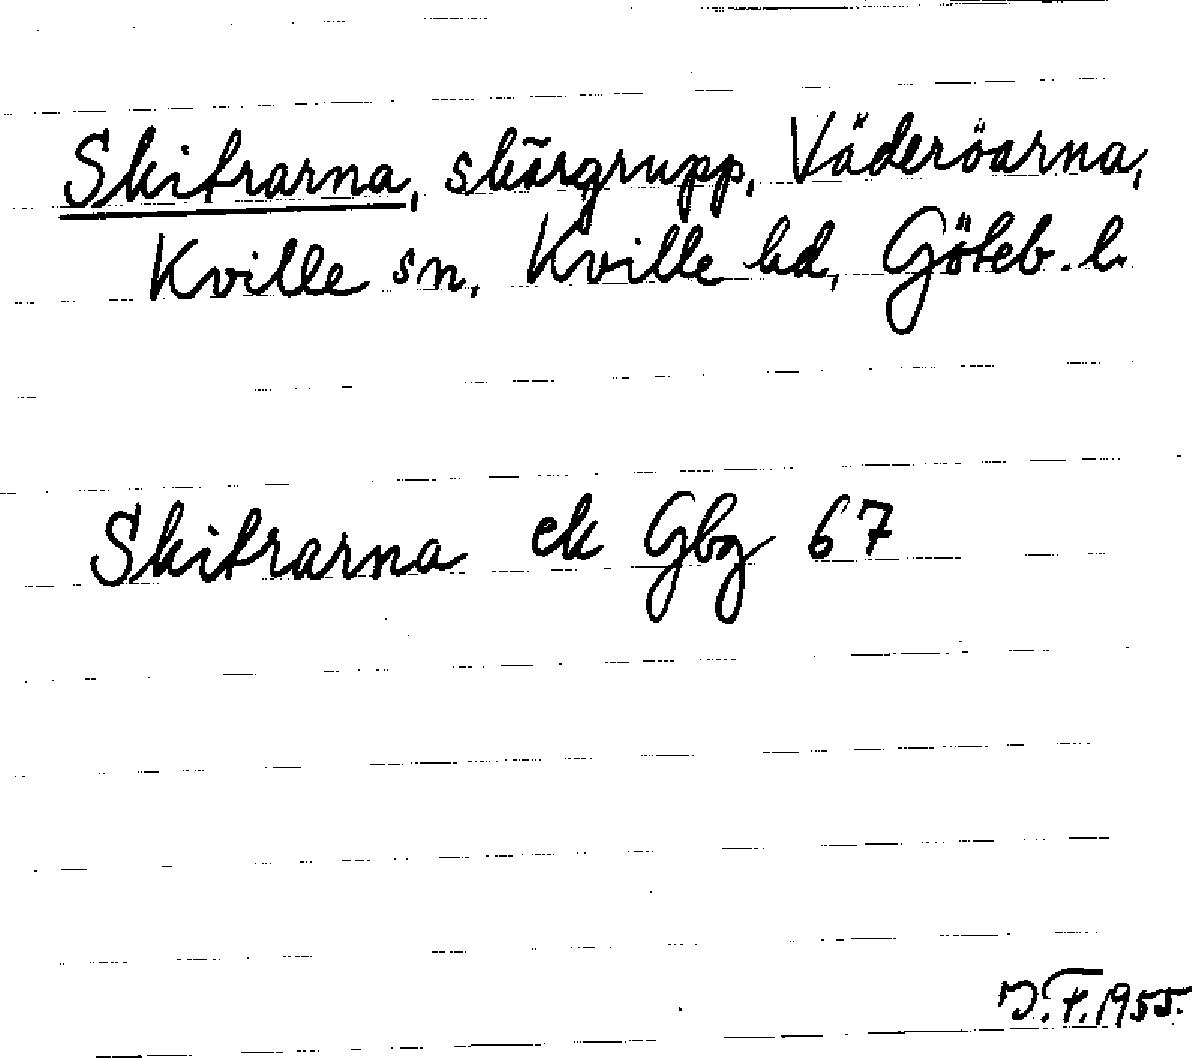 Skitrarna, skärgrupp, Väderöarna,
Kville sn, Kville hd, Göteb. l.
Skitrarna ek Gbg 67
J.F. 1955.